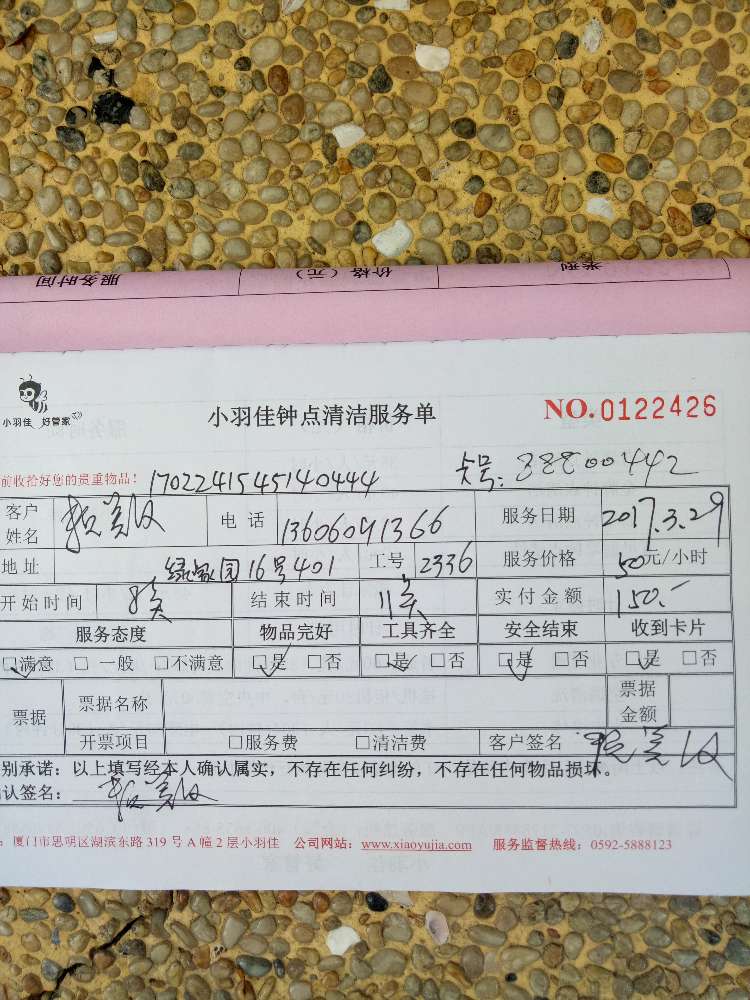 服务时间 价格（元） 类型
小羽佳 好管家
小羽佳钟点清洁服务单 NO.0122426
前收拾好您的贵重物品！ 1702241545140444 卡号：38800442
客户姓名 电话 13606091366 服务日期 2017.3.29
地址 16号401 工号 2336 服务价格 50元/小时
开始时间 8 结束时间 11 实付金额 150.-
服务态度 物品完好 工具齐全 安全结束 收到卡片
☑满意 □一般 □不满意 ☑是 □否 ☑是 □否 ☑是 □否 ☑是 □否
票据 票据名称 票据金额
开票项目 □服务费 □清洁费 客户签名
别承诺：以上填写经本人确认属实，不存在任何纠纷，不存在任何物品损坏。
认签名：
：厦门市思明区湖滨东路 319 号 A 幢 2 层小羽佳 公司网站：www.xiaoyujia.com 服务监督热线：0592-5888123